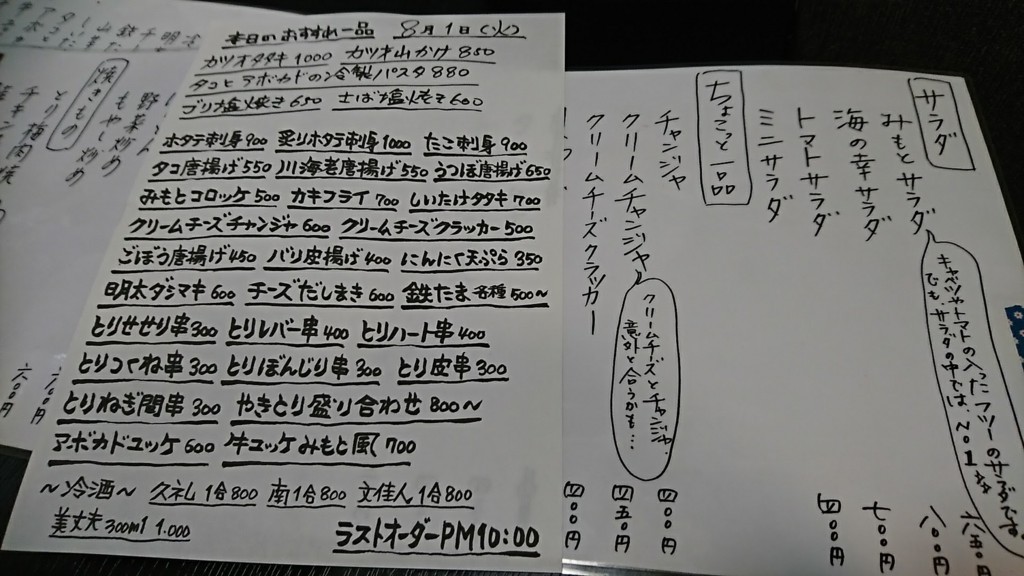 本日のおすすめ一品 8月1日(火)
カツオタタキ 1000 カツオ山かけ 850
タコとアボカドの冷製パスタ 880
ブリ塩焼き 650 さば塩焼き 600
ホタテ刺身 900 炙りホタテ刺身 1000 たこ刺身 900
タコ唐揚げ 550 川海老唐揚げ 550 うつぼ唐揚げ 650
みもとコロッケ 500 カキフライ 700 しいたけタタキ 700
クリームチーズチャンジャ 600 クリームチーズクラッカー 500
ごぼう唐揚げ 450 バリ皮揚げ 400 にんにく天ぷら 350
明太ダシマキ 600 チーズだしまき 600 鉄たま各種 500〜
とりせせり串 300 とりレバー串 400 とりハート串 400
とりつくね串 300 とりぼんじり串 300 とり皮串 300
とりねぎ間串 300 やきとり盛り合わせ 800〜
アボカドユッケ 600 牛ユッケみもと風 700
〜冷酒〜 久礼 1合 800 南 1合 800 文佳人 1合 800
美丈夫 300ml 1.000
ラストオーダーPM10:00
サラダ
みもとサラダ 六五〇円
キャベツやトマトの入ったフツーのサラダです。
でも、サラダの中では、No1かな
海の幸サラダ 八〇〇円
トマトサラダ 七〇〇円
ミニサラダ 四〇〇円
ちょこっと一品
チャンジャ 四〇〇円
クリームチャンジャ 四五〇円
クリームチーズとチャンジャ、
意外と合うかも…
クリームチーズクラッカー 四〇〇円
焼きもの
とり梅肉
もやし炒め
野菜炒め
六〇〇円